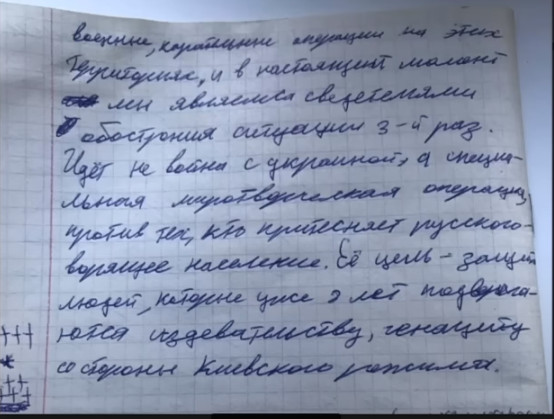 военные, карательные операции на этих
территориях, и в настоящей момент
мы являемся сведетелями
обострения ситуации 3-й раз.
Идёт не война с украиной, а специа-
льная миротворческая операция,
против тех, кто притесняет русского-
ворящее население. Её цель - защит
людей, которые уже 8 лет подверга-
ются издевательству, геноциду
со стороны Киевского режима.